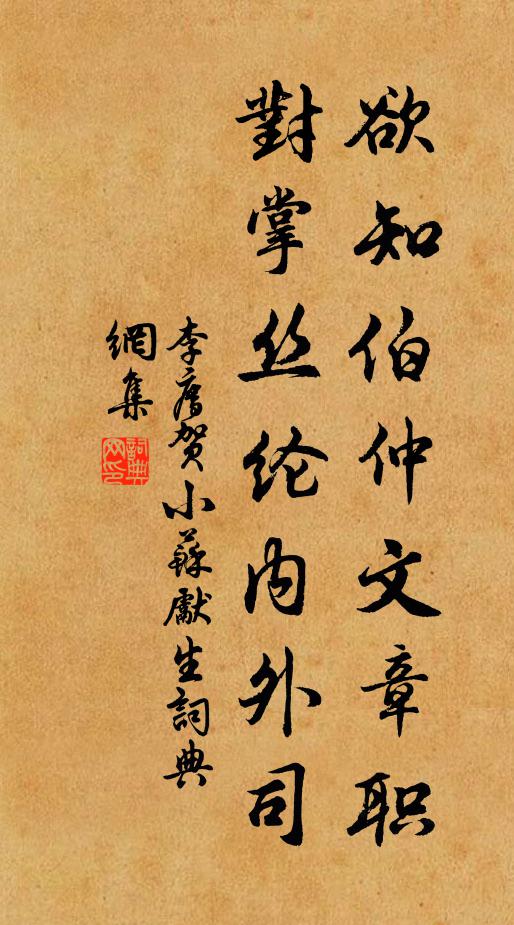 欲知伯仲文章职
對掌丝纶内外司
李廌贺小蘇獻生詞典
網集
詞典
网印